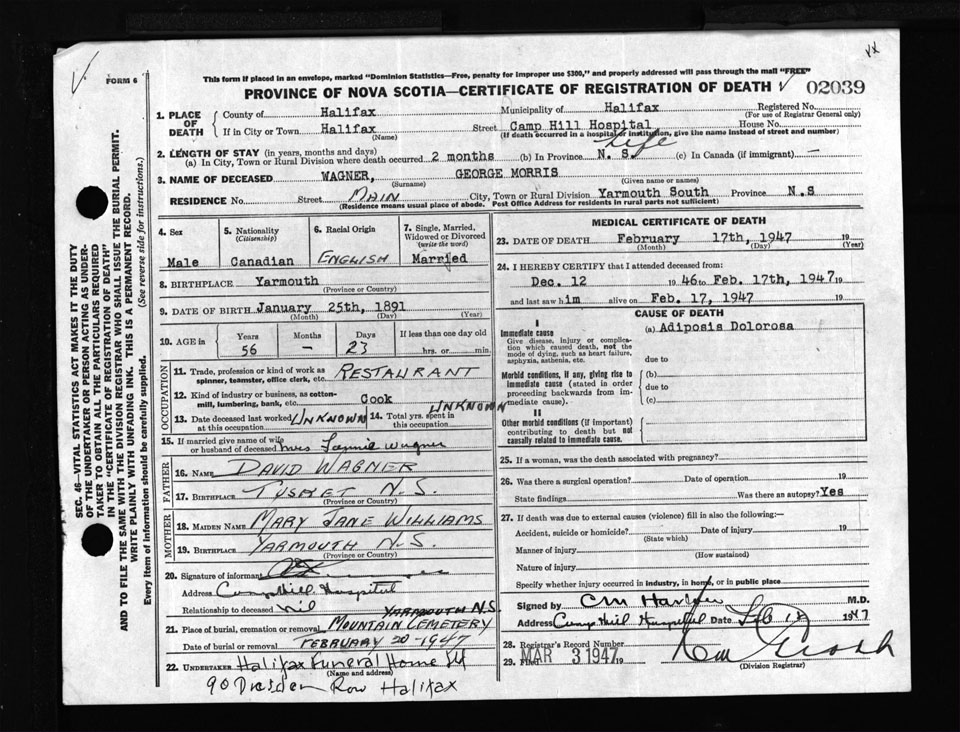 FORM 6
This form if placed in an envelope, marked "Dominion Statistics—Free, penalty for improper use $300," and properly addressed will pass through the mail "FREE"
PROVINCE OF NOVA SCOTIA—CERTIFICATE OF REGISTRATION OF DEATH 02039
1. PLACE OF DEATH County of Halifax Municipality of Halifax Registered No.
(For use of Registrar General only)
If in City or Town Halifax (Name) Street Camp Hill Hospital House No.
(If death occurred in a hospital or institution, give the name instead of street and number)
2. LENGTH OF STAY (in years, months and days)
(a) In City, Town or Rural Division where death occurred 2 months (b) In Province Life N. S. (c) In Canada (if immigrant) —
3. NAME OF DECEASED WAGNER, (Surname) GEORGE MORRIS (Given name or names)
RESIDENCE No. Street MAIN City, Town or Rural Division Yarmouth South Province N.S
(Residence means usual place of abode. Post Office Address for residents in rural parts not sufficient)
4. Sex Male
5. Nationality (Citizenship) Canadian
6. Racial Origin ENGLISH
7. Single, Married, Widowed or Divorced (write the word) Married
8. BIRTHPLACE Yarmouth
(Province or Country)
9. DATE OF BIRTH January 25th, 1891
(Month) (Day) (Year)
10. AGE in Years 56 Months – Days 23 If less than one day old hrs. or min.
OCCUPATION
11. Trade, profession or kind of work as spinner, teamster, office clerk, etc. RESTAURANT
12. Kind of industry or business, as cotton-mill, lumbering, bank, etc. Cook
13. Date deceased last worked at this occupation UNKNOWN 14. Total yrs. spent in this occupation UNKNOWN
15. If married give name of wife or husband of deceased Mrs Fannie Wagner
FATHER
16. NAME DAVID WAGNER
17. BIRTHPLACE TUSKET N.S.
(Province or Country)
MOTHER
18. MAIDEN NAME MARY JANE WILLIAMS
19. BIRTHPLACE YARMOUTH N.S.
(Province or Country)
20. Signature of informant
Address Camp Hill Hospital
Relationship to deceased nil
21. Place of burial, cremation or removal MOUNTAIN CEMETERY YARMOUTH N.S.
Date of burial or removal FEBRUARY 20 - 1947
22. UNDERTAKER Halifax Funeral Home Ltd
(Name and address)
90 Dresden Row Halifax
MEDICAL CERTIFICATE OF DEATH
23. DATE OF DEATH February 17th, 1947 19
(Month) (Day) (Year)
24. I HEREBY CERTIFY that I attended deceased from:
Dec. 12 1946 to Feb. 17th, 1947 19
and last saw him alive on Feb. 17, 1947 19
CAUSE OF DEATH
I
Immediate cause
Give disease, injury or complication which caused death, not the mode of dying, such as heart failure, asphyxia, asthenia, etc.
(a) Adiposis Dolorosa
due to
Morbid conditions, if any, giving rise to immediate cause (stated in order proceeding backwards from immediate cause).
(b)
due to
(c)
II
Other morbid conditions (if important) contributing to death but not causally related to immediate cause.
25. If a woman, was the death associated with pregnancy?
26. Was there a surgical operation? Date of operation 19
State findings Was there an autopsy? Yes
27. If death was due to external causes (violence) fill in also the following:—
Accident, suicide or homicide? Date of injury 19
(State which)
Manner of injury
(How sustained)
Nature of injury
Specify whether injury occurred in industry, in home, or in public place
Signed by M.D.
Address Camp Hill Hospital Date Feb 18 1947
28. Registrar's Record Number
29. Filed MAR 3 1947 19
(Division Registrar)
SEC. 46—VITAL STATISTICS ACT MAKES IT THE DUTY
OF THE UNDERTAKER OR PERSON ACTING AS UNDER-
TAKER TO OBTAIN ALL THE PARTICULARS REQUIRED
IN THE "CERTIFICATE OF REGISTRATION OF DEATH"
AND TO FILE THE SAME WITH THE DIVISION REGISTRAR WHO SHALL ISSUE THE BURIAL PERMIT.
WRITE PLAINLY WITH UNFADING INK. THIS IS A PERMANENT RECORD.
Every item of information should be carefully supplied. (See reverse side for instructions.)